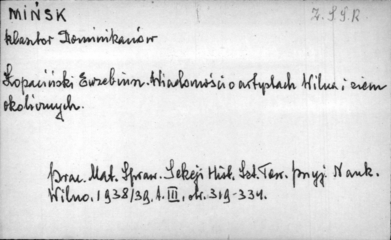 MIŃSK
Z.SSR
klasztor Dominikanów
Łopaciński Euzebiusz. Wiadomości o artystach Wilna i ziem
okolicznych.
Prac. Mat. Spraw. Sekcji Hist. Szt. Tow. Przyj. Nauk.
Wilno. 1938/39, t. III, str. 319-334.